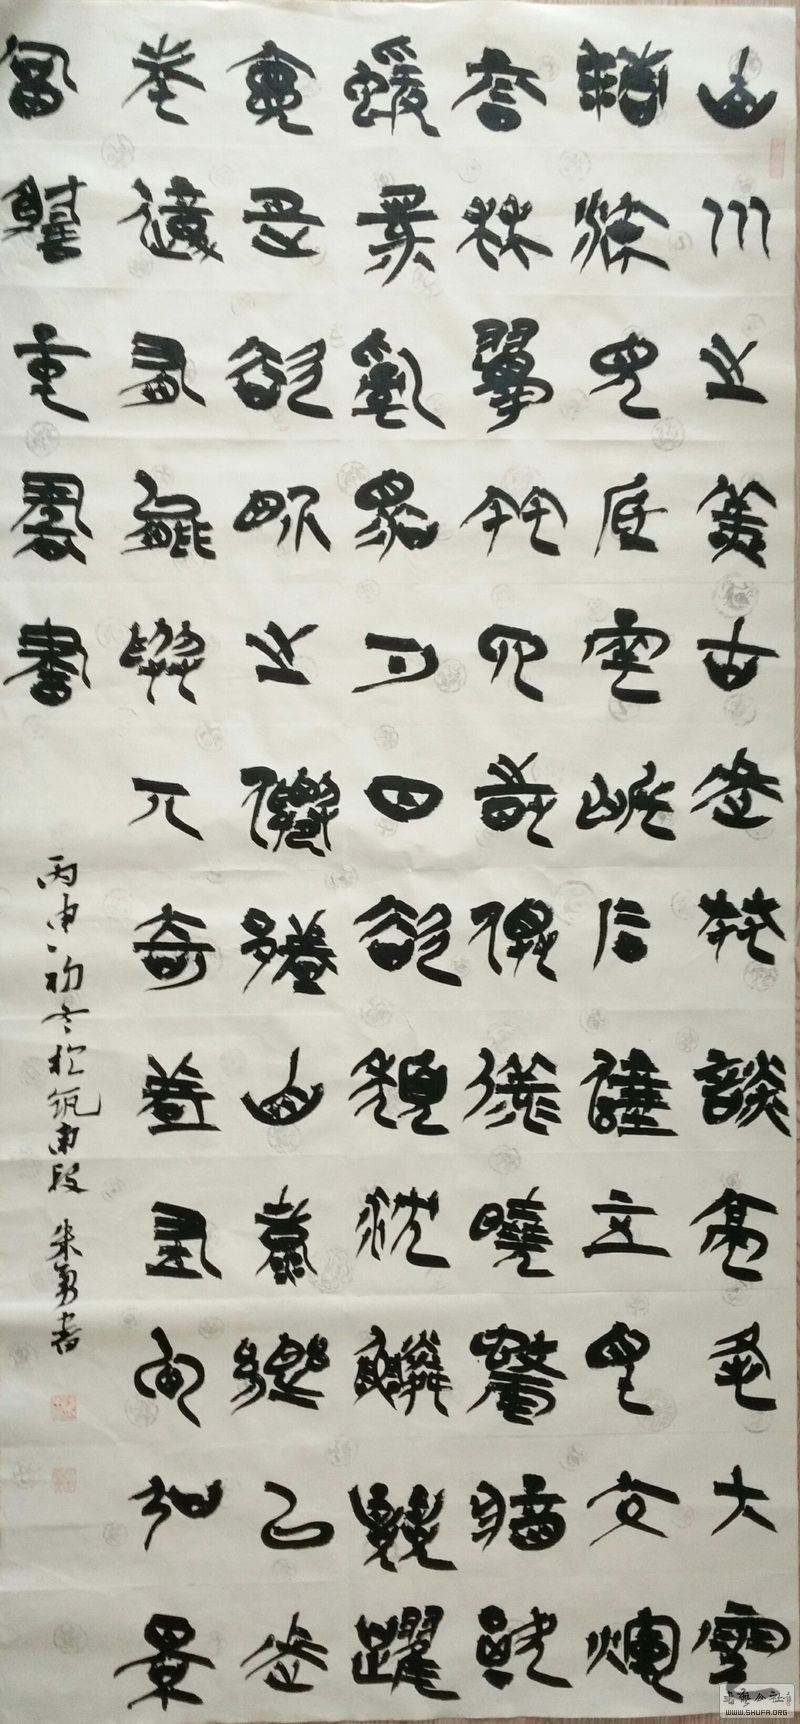 山川之美古來共談高峰入雲
清流見底兩岸石壁五色交輝
青林翠竹四時俱備曉霧將歇
猿鳥亂鳴夕日欲頹沉鱗競躍
實是欲界之仙都自康樂以來
未復有能與其奇者陶弘景
答謝中書書
丙申初冬於筑東段 朱勇書
WWW.SHUFA.ORG